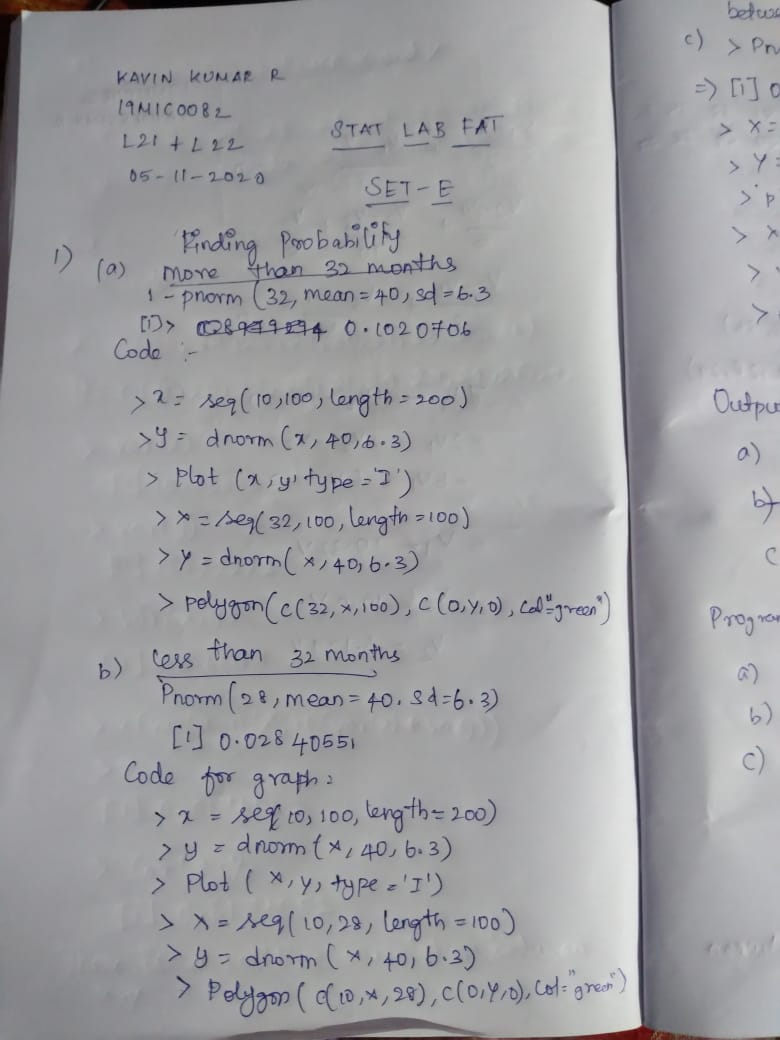 KAVIN KUMAR R
19MIC0082
L21 + L22
05-11-2020
STAT LAB FAT
SET-E
1) (a) Finding Probability
more than 32 months
1 - pnorm (32, mean = 40, sd = 6.3
[1]> 0.1020706
Code :-
> x = seq(10,100, length = 200)
> y = dnorm (x, 40, 6.3)
> Plot (x, y, type = 'I')
> x = seq(32,100, length = 100)
> y = dnorm( x, 40, 6.3)
> polygon(c(32, x,100), c(0,y,0), col="green")
b) less than 32 months
Pnorm (28, mean = 40, sd = 6.3)
[1] 0.02840551
Code for graph:
> x = seq( 10, 100, length = 200)
> y = dnorm (x, 40, 6.3)
> Plot ( x, y, type = 'I')
> x = seq( 10, 28, length = 100)
> y = dnorm ( x, 40, 6.3)
> Polygon ( c(10, x, 28), c(0, y, 0), col = "green")
c) > Pn
=> [1] 0
> x =
> y =
> p
> x
>
>
Outpu
a)
b)
c
Progra
a)
b)
c)